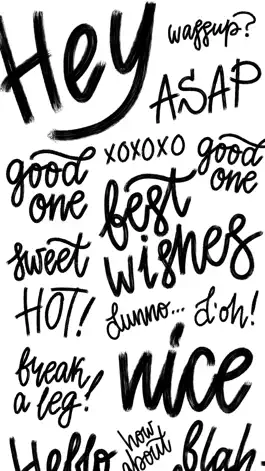 Hey
wassup?
ASAP
good
one
xoxoxo
good
one
best
wishes
sweet
HOT!
dunno...
d'oh!
break
a leg!
nice
Hello
how
about
blah